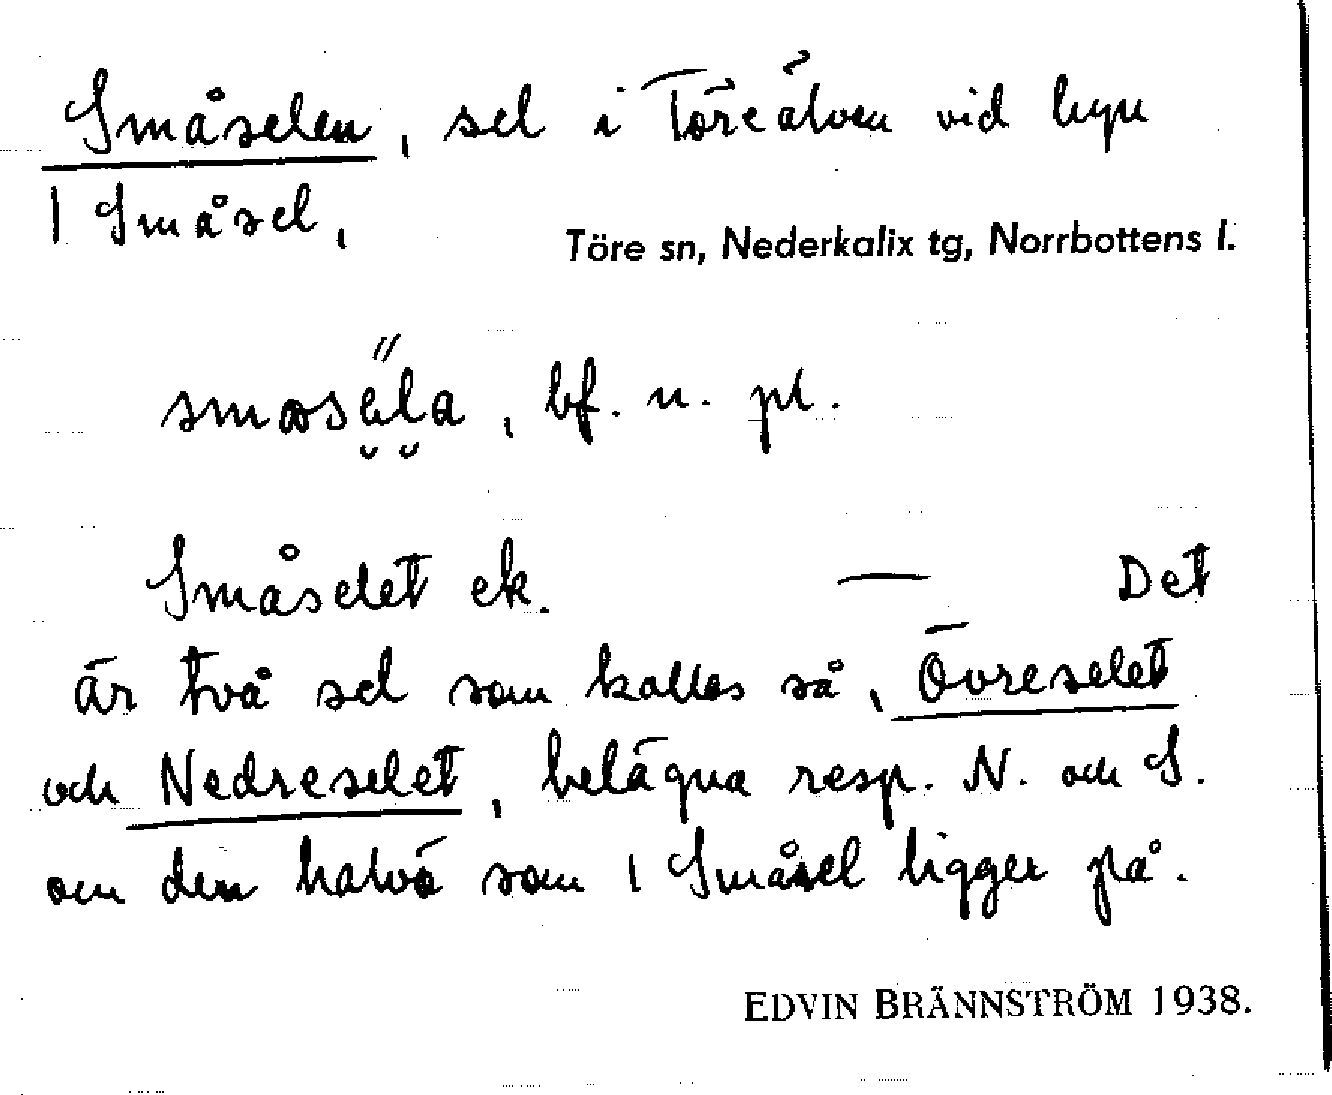 Småselen, sel i Töreälven vid byn
1 Småsel,
Töre sn, Nederkalix tg, Norrbottens l.
bf. n. pl.
Småselet ek. — Det
är två sel som kallas så, Övreselet
och Nedreselet, belägna resp. N. och S.
om den halvö som 1 Småsel ligger på.
EDVIN BRÄNNSTRÖM 1938.